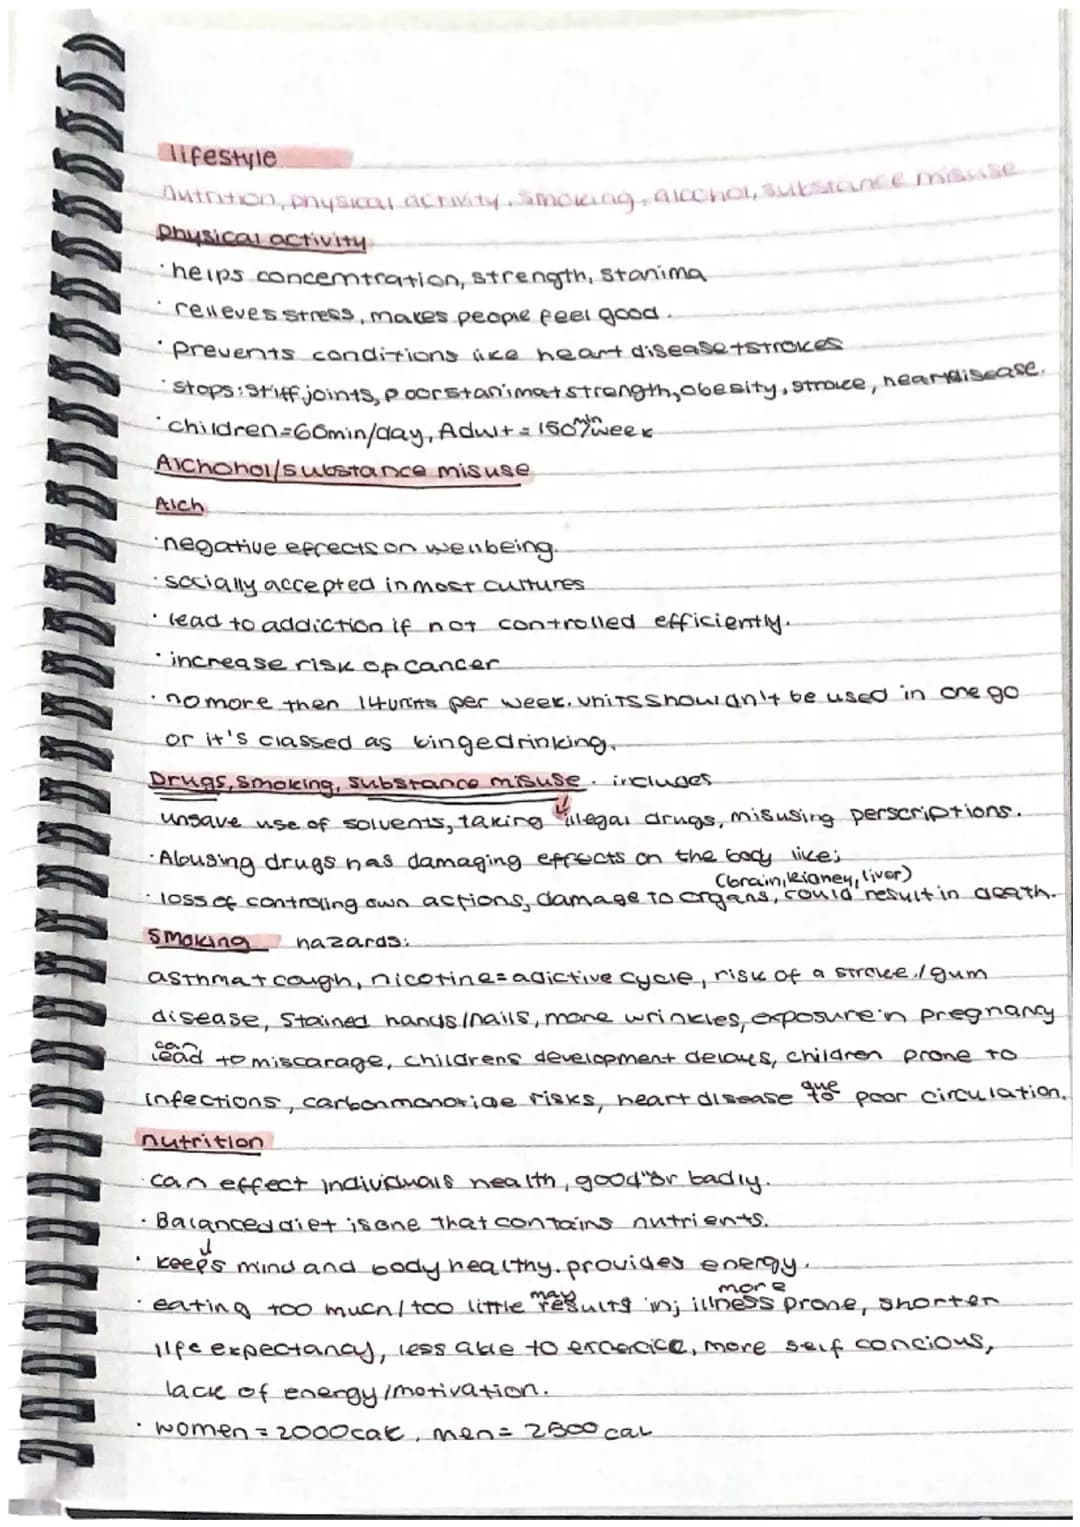 lifestyle
nutrition, physical activity, smoking, alcohol, substance misuse
physical activity
· helps concemtration, strength, stanima
· relieves stress, makes people feel good.
· prevents conditions like heart disease + strokes
· stops: stiff joints, poor stanima + strength, obesity, stroke, heart disease.
· children = 60min/day, Adult = 150 min/week
Alchohol/substance misuse
Alch
· negative effects on wellbeing.
· socially accepted in most cultures
· lead to addiction if not controlled efficiently.
· increase risk of cancer
· no more then 14 units per week. units shouldn't be used in one go
or it's classed as bingedrinking.
Drugs, smoking, substance misuse. includes
unsave use of solvents, taking illegal drugs, misusing perscriptions.
· Abusing drugs has damaging effects on the body like;
(brain, kidney, liver)
· loss of controling own actions, damage to organs, could result in death.
smoking hazards:
asthma + cough, nicotine = adictive cycle, risk of a stroke / gum
disease, stained hands/nails, more wrinkles, exposure in pregnancy
can lead to miscarage, childrens development delays, children prone to
infections, carbonmonoxide risks, heart disease due to poor circulation.
nutrition
· can effect individuals health, good or badly.
· Balanced diet is one that contains nutrients.
· keeps mind and body healthy. provides energy.
· eating too much / too little may results in; illness more prone, shorter
life expectancy, less able to excercice, more self concious,
lack of energy/motivation.
· women = 2000cal, men = 2500 cal